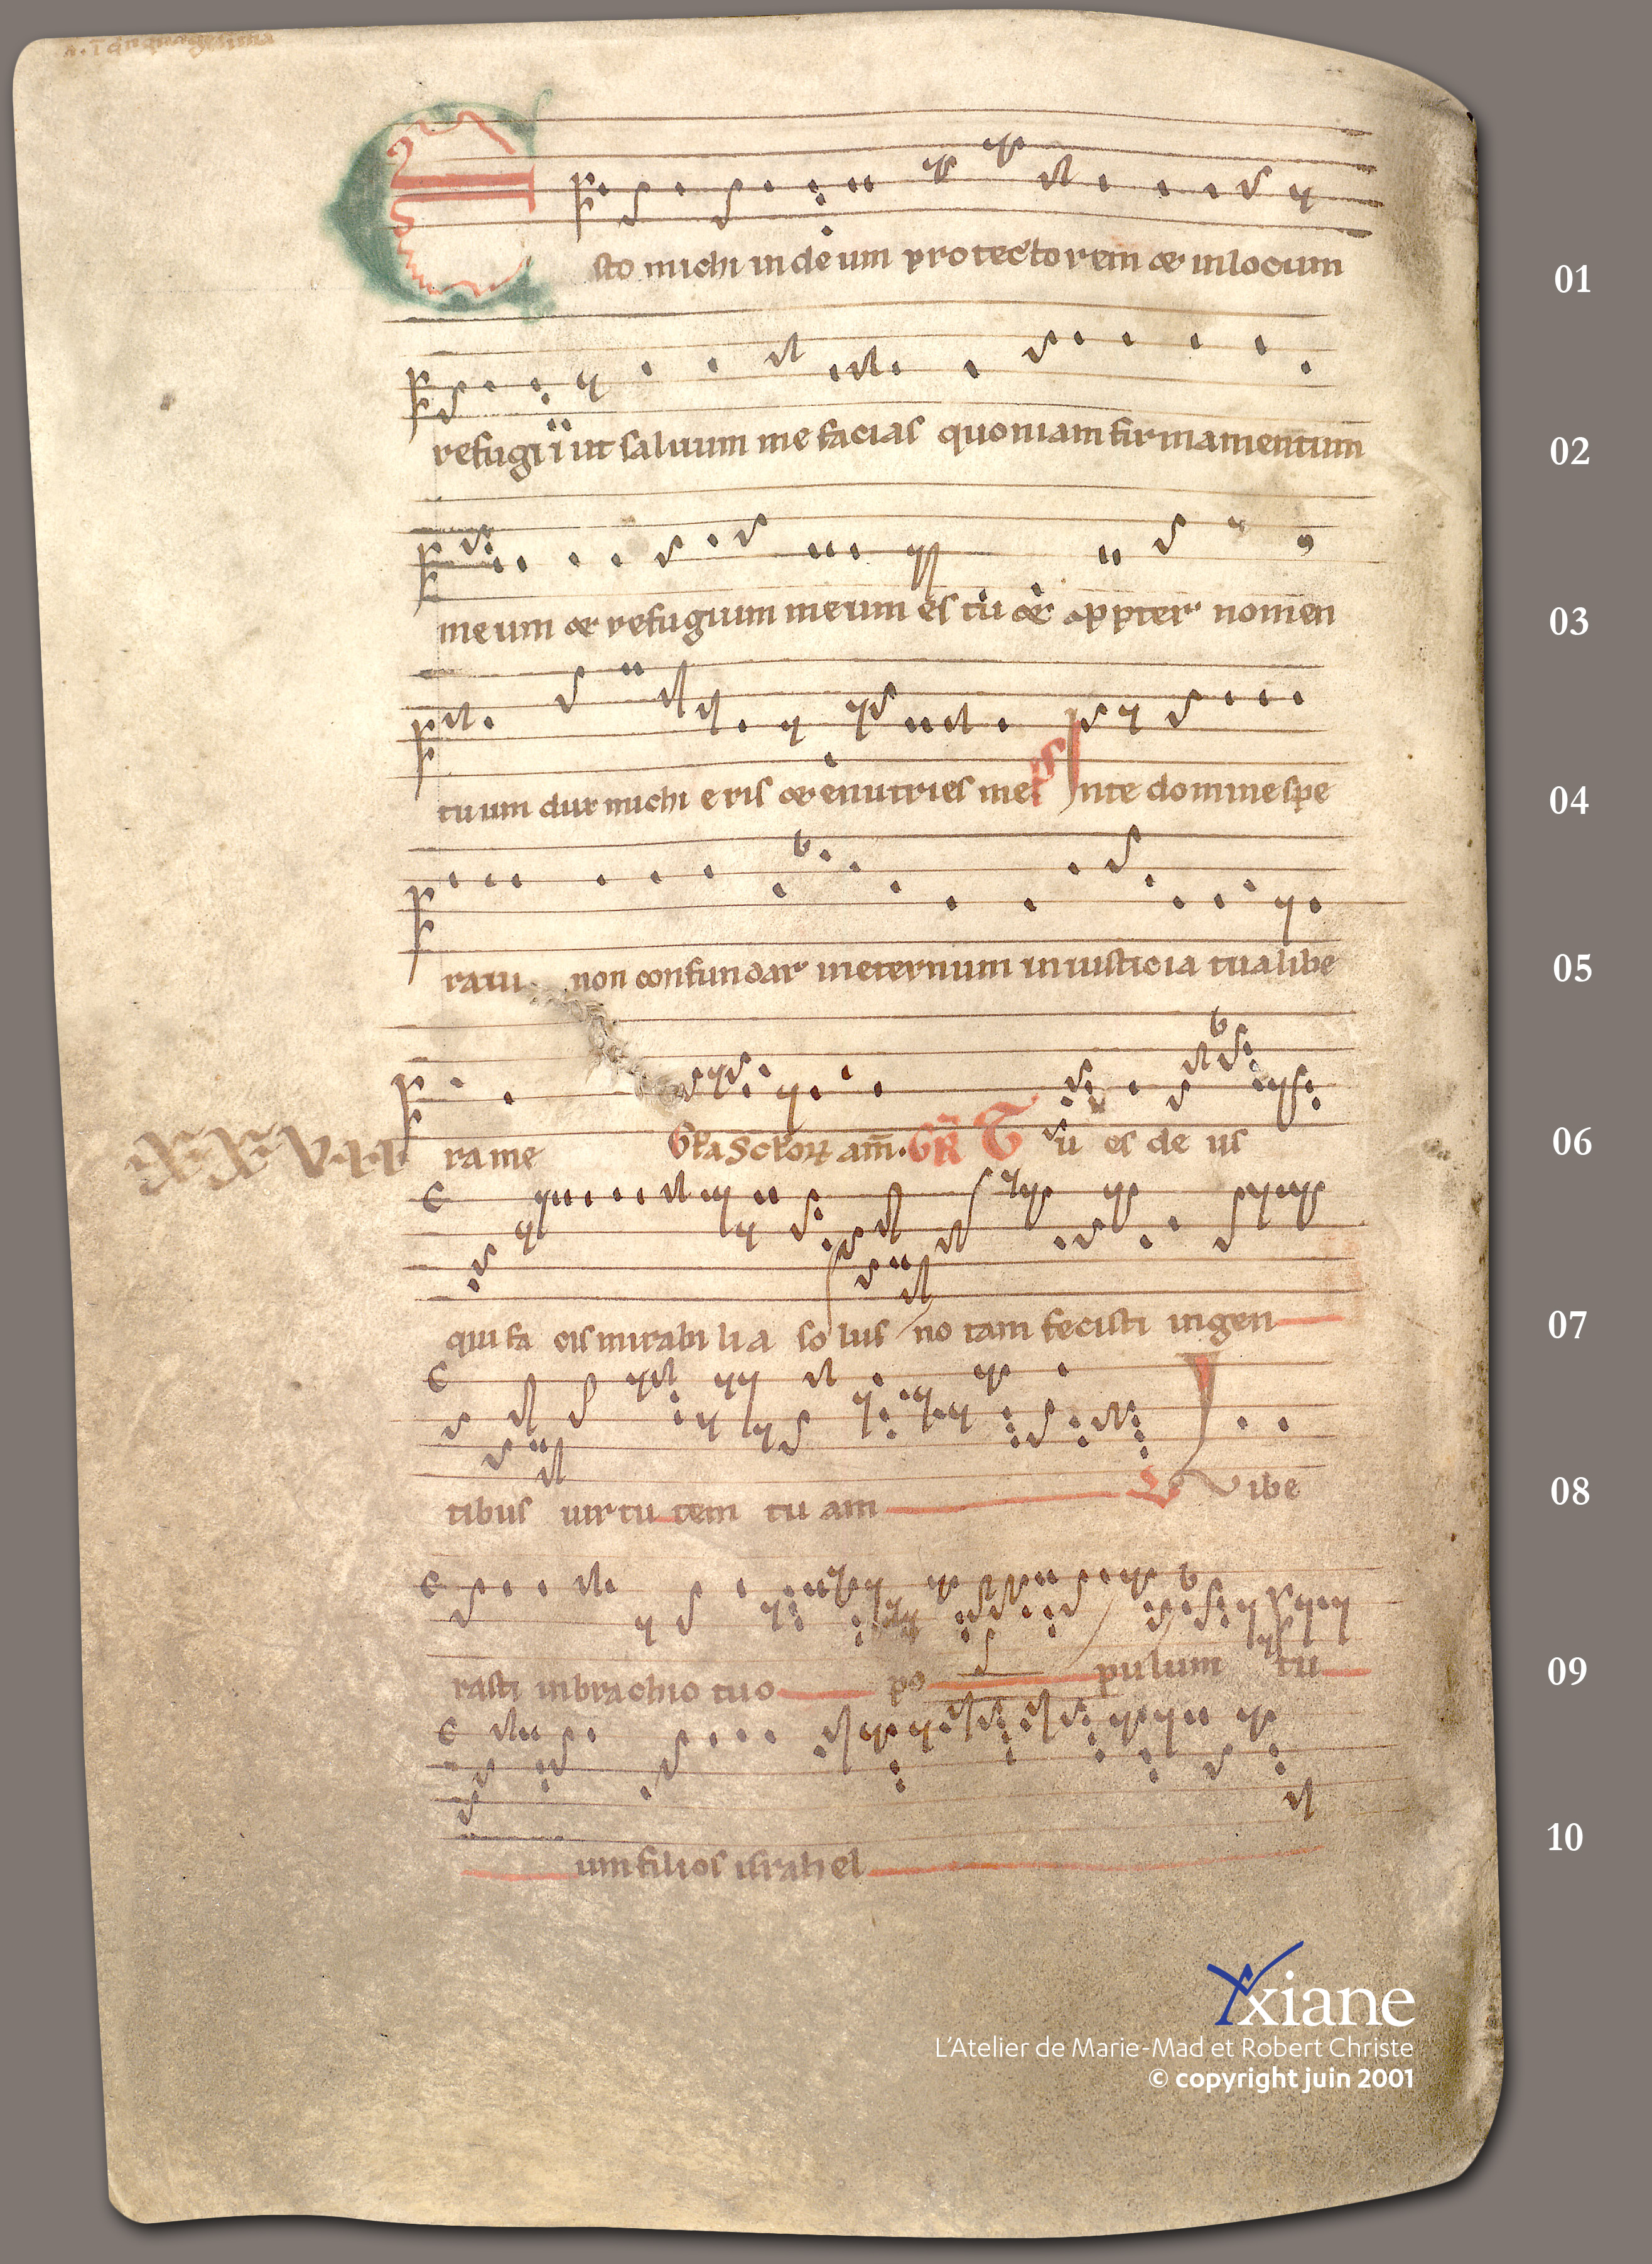 In quinquagesima
Esto michi in deum protectorem & in locum
01
refugii ut saluum me facias quoniam firmamentum
02
meum & refugium meum es tu & ꝓpter nomen
03
tuum dux michi eris & enutries me Ps In te domine spe
04
raui non confundar ineternum in iusticia tua libe
05
rame Gła Sctorꝝ am̄. GR̃ Tu es de us
XXVII
06
qui fa cis mirabi li a so lus no tam fecisti in gen
07
tibus uirtu tem tu am V Libe
08
rasti in brachio tuo po pulum tu
09
um filios israhel
10
Yxiane
L'Atelier de Marie-Mad et Robert Christe
© copyright juin 2001